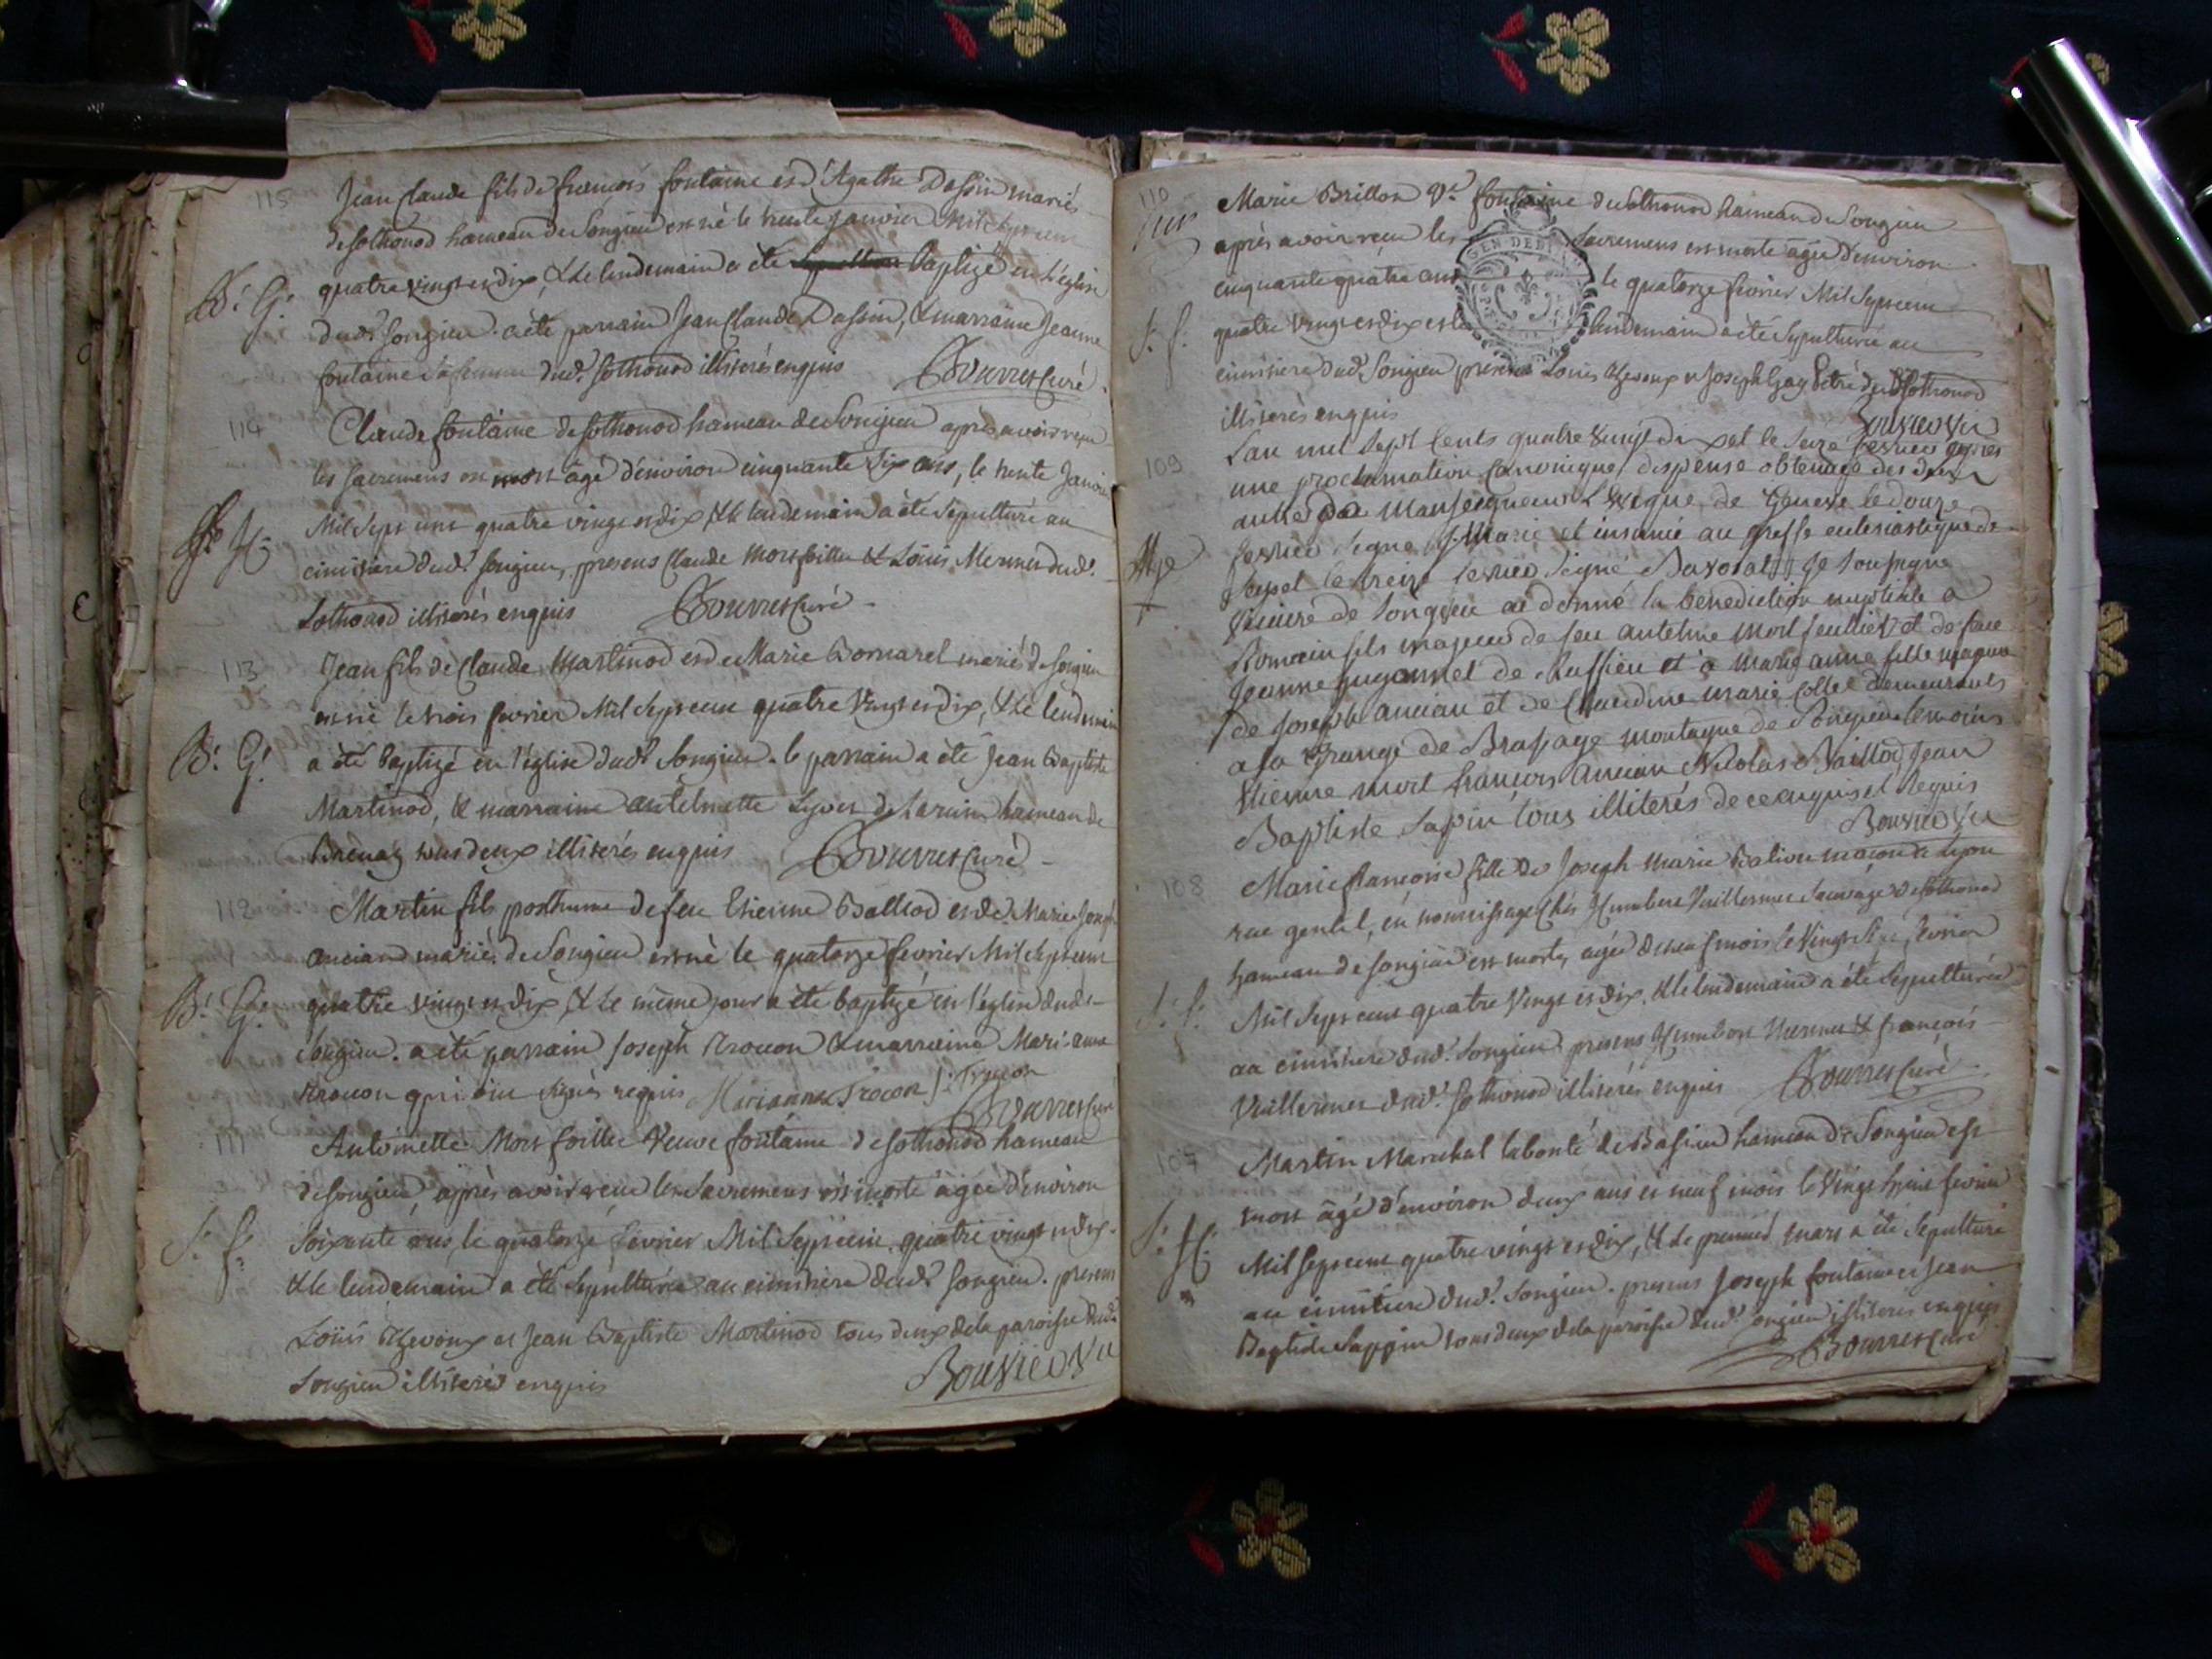 115
Jean Claude fils de françois fontaine et d'Agathe Dassin mariés
de sothonod hameau de Songieu est né le trente janvier Mil Sept cent
quatre vingt et dix, & le lendemain a été baptizé en l'église
B: G:
dud. Songieu. a été parrain Jean Claude Dassin, & marraine Jeanne
fontaine sa femme dud. sothonod illiterés enquis Bouvret Curé
114
Claude fontaine de sothonod hameau de Songieu après avoir reçu
les sacremens est mort âgé d'environ cinquante six ans, le trente Janvier
Mil Sept cent quatre vingt et dix, & le lendemain a été sepulturé au
S: H:
cimitiere dud. songieu, presens Claude Mortfoillet & Loüis Mermet dud.
sothonod illiterés enquis Bouvret Curé
113
Jean fils de Claude Martinod et de Marie Bornarel mariés de songieu
est né le trois fevrier Mil Sept cent quatre Vingt et dix, & le lendemain
B: G:
a été baptizé en l'église dud. Songieu. le parrain a été Jean Baptiste
Martinod, & marraine antelmette hameau de
tous deux illiterés enquis Bouvret Curé
112
Martin fils posthume de feu Etienne Balliod et de Marie
anciand mariés de Songieu est né le quatorze fevrier Mil Sept cent
B: G:
quatre vingt et dix, & le même jour a été baptizé en l'église dud.
Songieu. a été parrain Joseph Trocon & marraine Mari-anne
trocon qui ont signés requis Marianne Trocon J: Trocon
Bouvret Curé
111
Antoinette Mortfoillet Veuve fontaine de sothonod hameau
de songieu, après avoir reçu les Sacremens est morte agée d'environ
S: f:
soixante ans, le quatorze fevrier Mil Sept cent quatre vingt et dix.
& le lendemain a été sepulturée au cimitiere dud. songieu. presens
Loüis et Jean Baptiste Martinod tous deux de la paroisse dud.
Songieu illiterés enquis Bouvier Vic
110
Marie Brillon Ve. fontaine de sothonod hameau de Songieu
après avoir reçu les Sacremens est morte agée d'environ
cinquante quatre ans le quatorze fevrier Mil Sept cent
S: f:
quatre Vingt et dix et le lendemain a été sepulturée au
cimitiere dud. Songieu presens Loüis & Joseph Gay dud. sothonod
illiterés enquis Bouvier Vic
109
L'an mil sept cents quatre vingt dix et le seize fevrier après
une proclamation canonique, dispense obtenue des deux
autres de Monseigneur L'Eveque de Geneve le douze
fevrier signé J. Marie et insinué au greffe eclesiastique de
Mge
Seysel le treize fevrier signé Je soussigné
Vicaire de Songieu ai donné la benediction nuptiale a
Romain fils majeur de feu antelme Mortfeuillet et de feue
Jeanne hugonnet de Ruffieu et a Marie anne fille majeure
de Joseph anciau et de Claudine marie Collet demeurants
a la Grange de Brassage montagne de Songieu temoins
Etienne mort françois anciau Nicolas Bailliod Jean
Baptiste Sapin tous illiterés de ce enquis et requis
Bouvier Vic
108
Marie francoise fille de Joseph Marie macon de Lyon
rue gentil, en nourrissage chés Humbert Vuillermet Sauvage de sothonod
hameau de songieu est morte, agée de neuf mois le Vingt six fevrier
S: f:
Mil Sept cent quatre Vingt et dix, & le lendemain a été sepulturée
au cimitiere dud. Songieu presens Humbert Mermet & françois
Vuillermet dud. sothonod illiterés enquis Bouvret Curé
107
Martin Marechal labonté de Bassieu hameau de Songieu est
mort âgé d'environ deux ans et neuf mois le Vingt huit fevrier
S: H:
Mil Sept cent quatre vingt et dix, & le premier mars a été sepulturé
au cimitiere dud. Songieu. presens Joseph fontaine et Jean
Baptiste Sappin tous deux de la paroisse dud. songieu illiterés enquis
Bouvret Curé